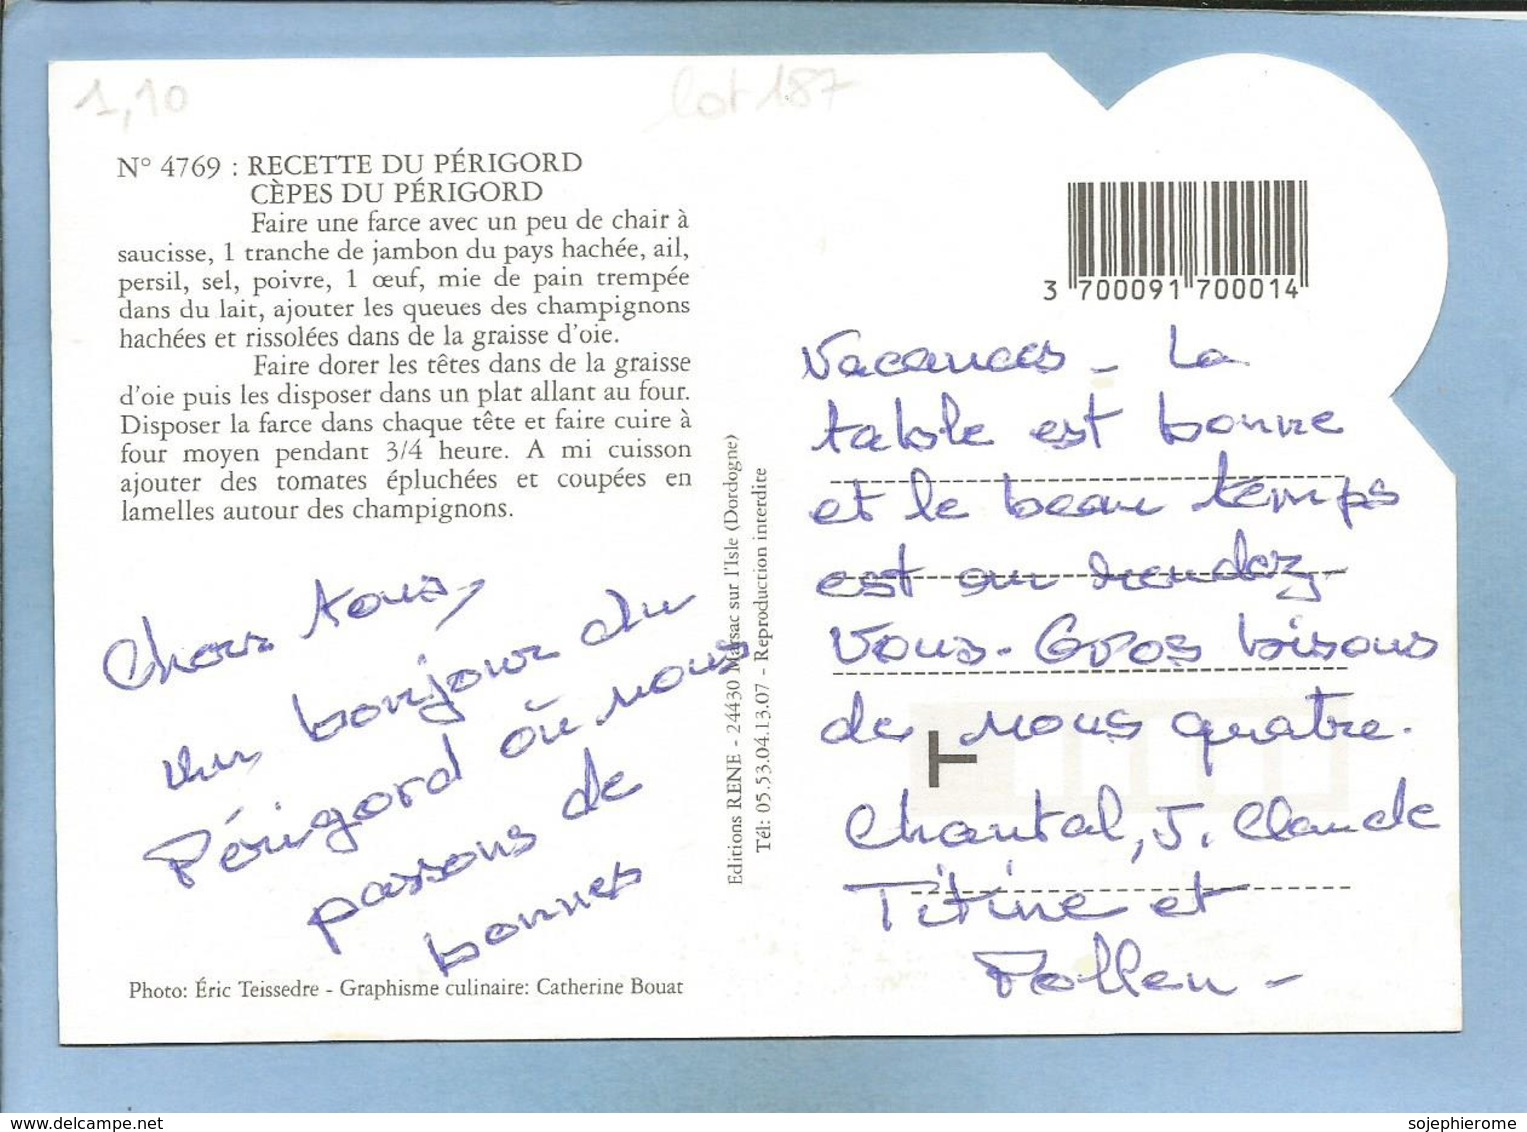 1,10
lot 187
N° 4769 : RECETTE DU PÉRIGORD
CÈPES DU PÉRIGORD
Faire une farce avec un peu de chair à
saucisse, 1 tranche de jambon du pays hachée, ail,
persil, sel, poivre, 1 œuf, mie de pain trempée
dans du lait, ajouter les queues des champignons
hachées et rissolées dans de la graisse d'oie.
Faire dorer les têtes dans de la graisse
d'oie puis les disposer dans un plat allant au four.
Disposer la farce dans chaque tête et faire cuire à
four moyen pendant 3/4 heure. A mi cuisson
ajouter des tomates épluchées et coupées en
lamelles autour des champignons.
Chers tous,
un bonjour du
Périgord où nous
passons de
bonnes
Photo: Éric Teissedre - Graphisme culinaire: Catherine Bouat
Editions RENE - 24430 Marsac sur l'Isle (Dordogne)
Tél: 05.53.04.13.07 - Reproduction interdite
3 700091 700014
Vacances - La
table est bonne
et le beau temps
est au rendez
vous - Gros bisous
de nous quatre.
Chantal, J. Claude
Titine et
Pollen -
delcampe.net
sojephierome